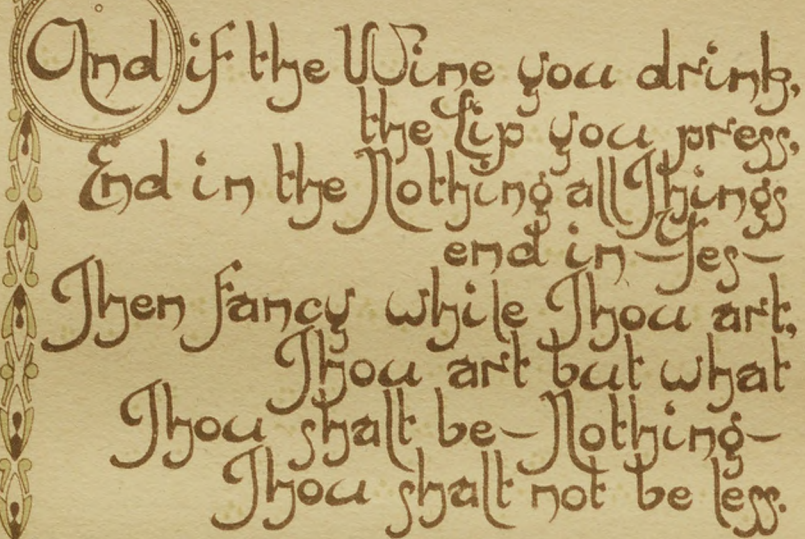 And if the Wine you drink,
the Lip you press,
End in the Nothing all Things
end in—Yes—
Then fancy while Thou art,
Thou art but what
Thou shalt be—Nothing—
Thou shalt not be less.